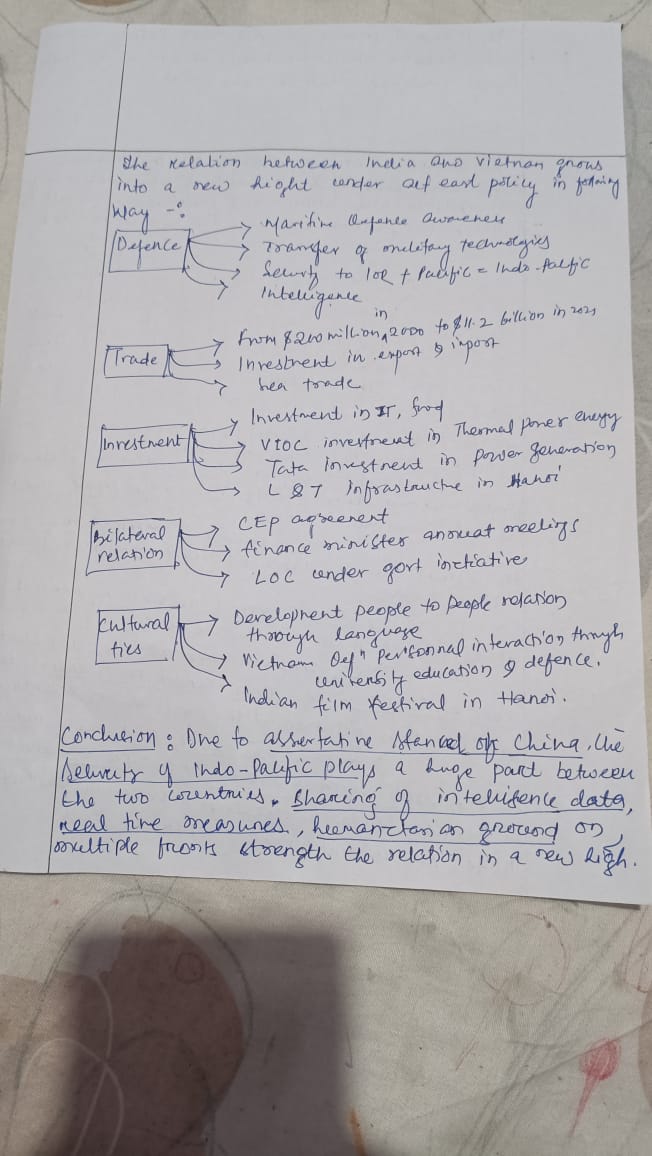 The relation between India and Vietnam grows
into a new hight under act east policy in following
Way -:
Defence
Maritime Defence Awareness
Transfer of military technologies
Security to IOR + Pacific = Indo-Pacific
Intelligence
Trade
From $200 million in 2000 to $11.2 billion in 2021
Investment in export & import
Sea trade
Investment
Investment in IT, food
investment in Thermal power energy
Tata investment in power generation
L & T infrastructure in Hanoi
Bilateral
relation
CEP agreement
finance minister annual meetings
LOC under govt initiative
Cultural
ties
Development people to people relation
through language
Vietnam Defn personnal interaction through
university education & defence.
Indian film festival in Hanoi.
Conclusion : Due to assertative stance of China, the
security of Indo-Pacific plays a huge part between
the two countries. Sharing of intelligence data,
real time measures, humanitarian ground on
multiple fronts strength the relation in a new high.